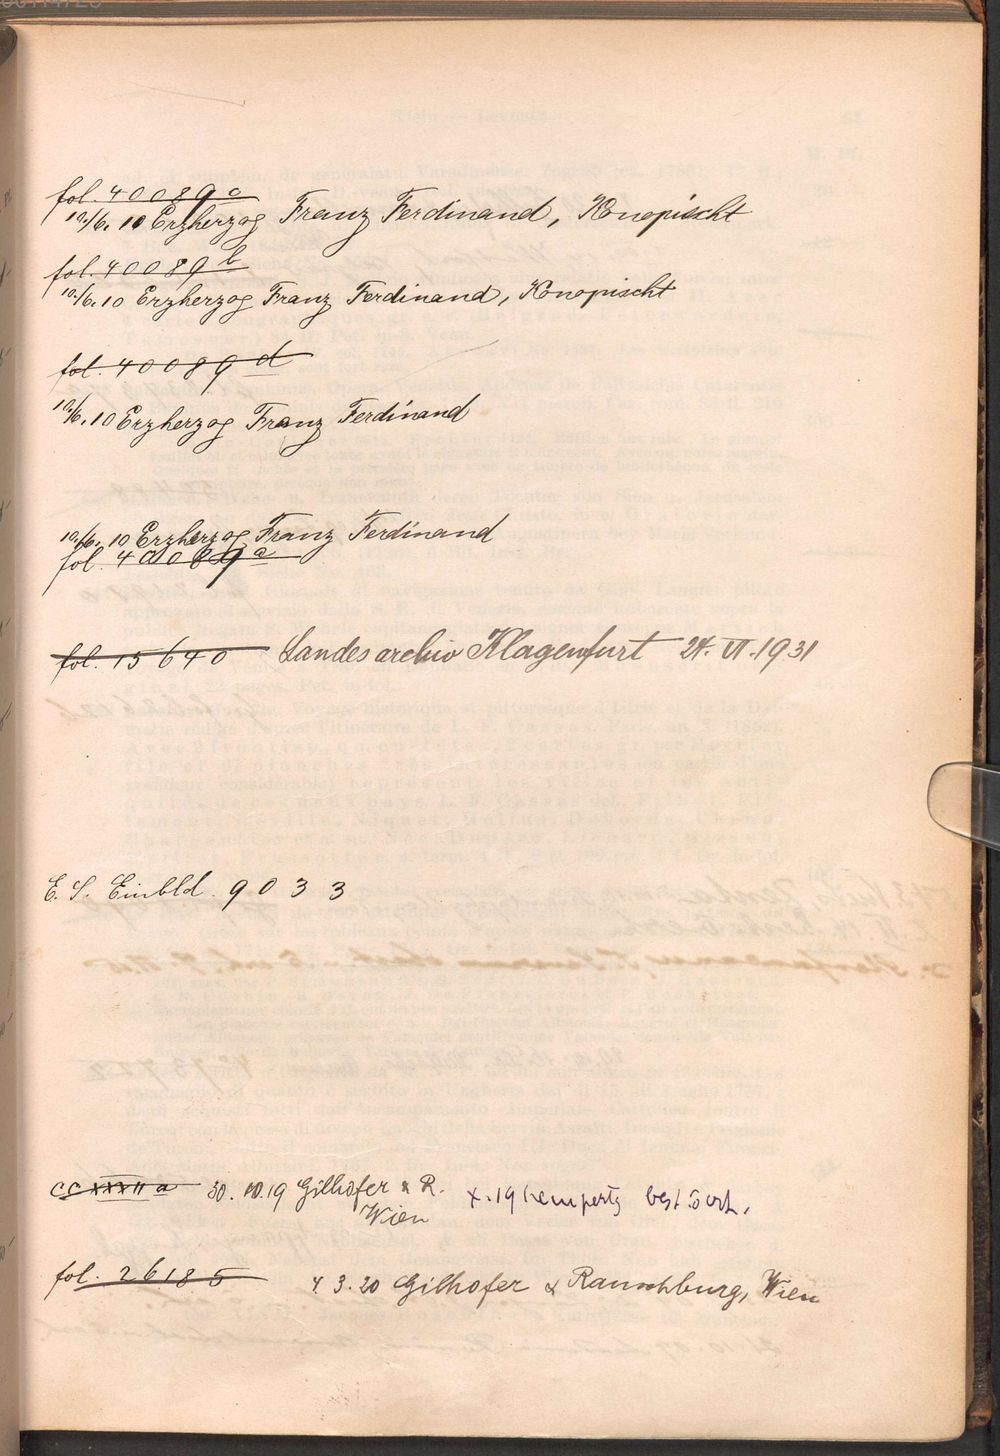 fol. 40089c
10/6. 10 Erzherzog Franz Ferdinand, Konopischt
fol. 40089b
10/6. 10 Erzherzog Franz Ferdinand, Konopischt
fol. 40089d
10/6. 10 Erzherzog Franz Ferdinand
10/6. 10 Erzherzog Franz Ferdinand
fol. 40089a
fol. 15640 Landesarchiv Klagenfurt 24. VI. 1931
E. S. Einbld. 9033
CCXXXII a 30. 10. 19 Gilhofer & R. Wien
X. 19
fol. 26185 4 3. 20 Gilhofer & Ranschburg, Wien